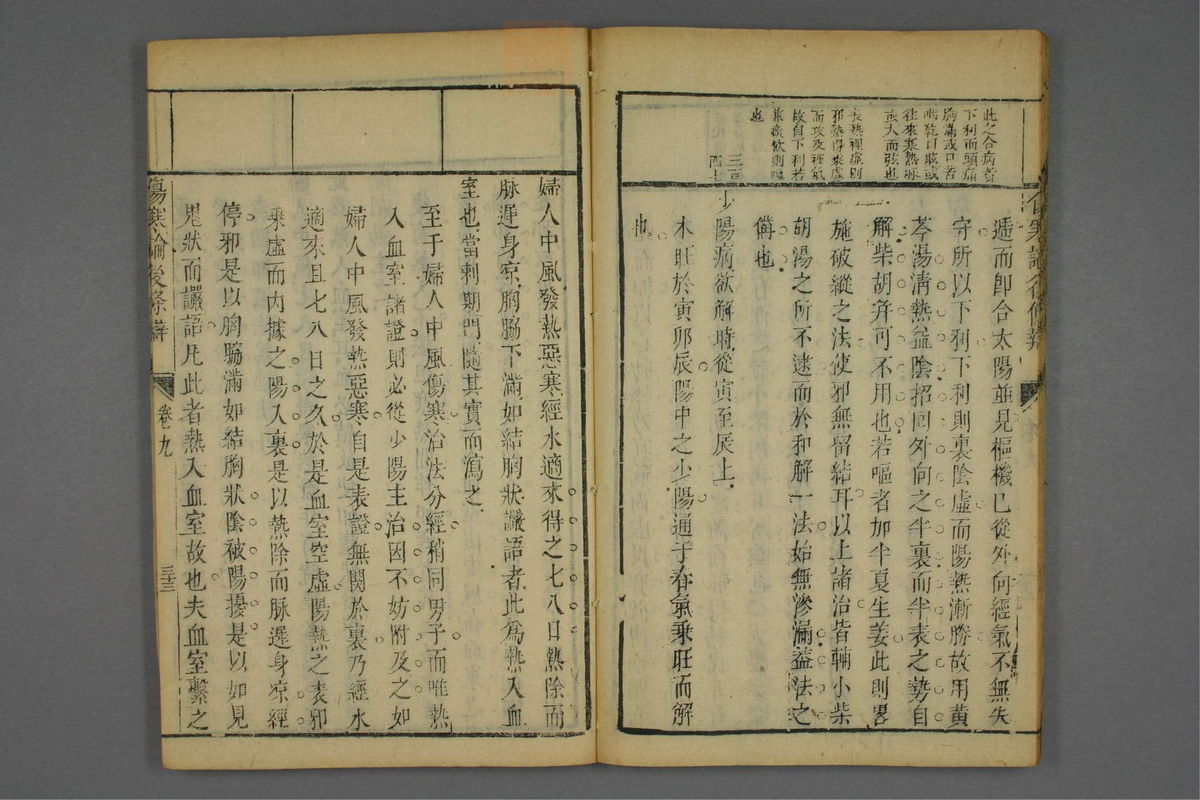 此之合病者
下利而頭痛
胸滿或口苦
咽乾目眩或
往來寒熱脉
或大而弦也
表熱裡虛則
邪熱得乘虛
而攻及裡氣
故自下利若
也
遞而卽合太陽並見樞機已從外向經氣不無失
守所以下利下利則裏陰虛而陽熱漸勝故用黃
芩湯清熱益陰招回外向之半裏而半表之勢自
解柴胡幷可不用也若嘔者加半夏生姜此則畧
施破縱之法使邪無留結耳以上諸治皆輔小柴
胡湯之所不逮而於和解一法始無滲漏蓋法之
備也
少陽病欲解時從寅至辰上
木旺於寅卯辰陽中之少陽通于春氣乘旺而解
也
婦人中風發熱惡寒經水適來得之七八日熱除而
脉遲身凉胸脇下滿如結胸狀讝語者此爲熱入血
室也當刺期門隨其實而瀉之
至于婦人中風傷寒治法分經稍同男子而唯熱
入血室諸證則必從少陽主治因不妨附及之如
婦人中風發熱惡寒自是表證無関於裏乃經水
適來且七八日之久於是血室空虛陽熱之表邪
乘虛而內據之陽入裏是以熱除而脉遲身凉經
停邪是以胸脇滿如結胸狀陰被陽擾是以如見
鬼狀而讝語凡此者熱入血室故也夫血室繫之
傷寒論後條辯
卷九
三十三